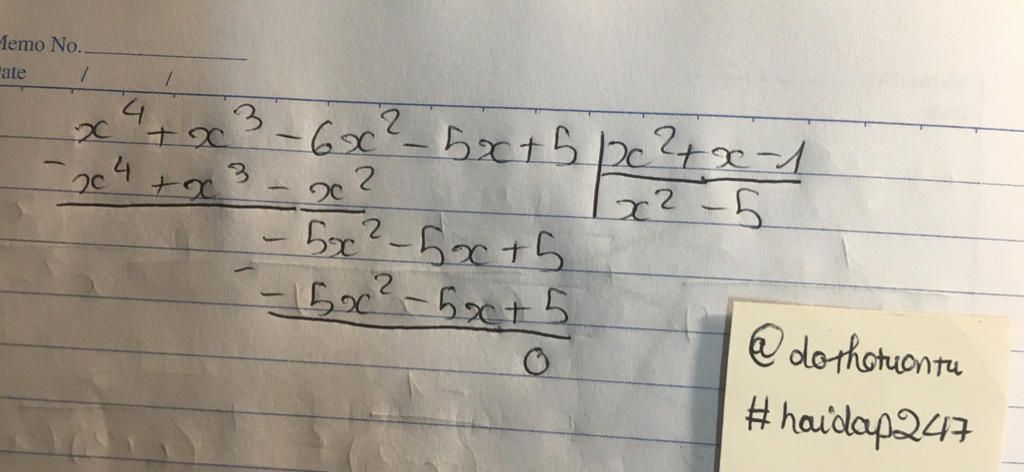 Memo No.
ate / /
x⁴ + x³ - 6x² - 5x + 5 | x² + x - 1
- x⁴ + x³ - x² | x² - 5
- 5x² - 5x + 5
- - 5x² - 5x + 5
0
@dothotuontu
#haidap247